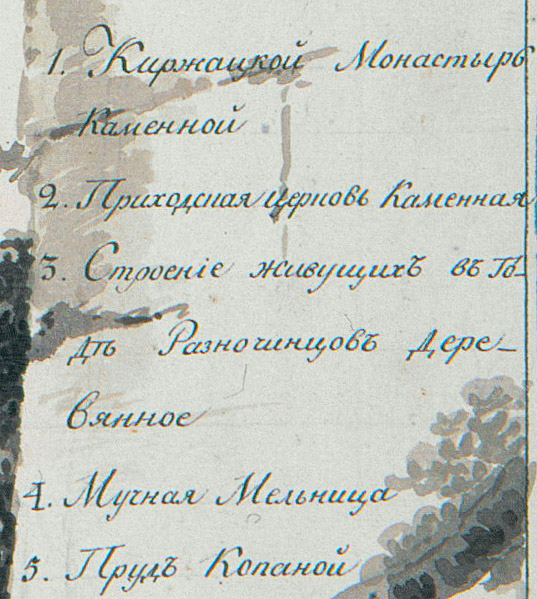 1. Киржацкой Монастырь
Каменной
2. Приходская церковь Каменная
3. Строеніе живущихъ въ Го-
дѣ Разночинцовъ Дере-
вянное
4. Мучная Мельница
5. Прудъ Копаной